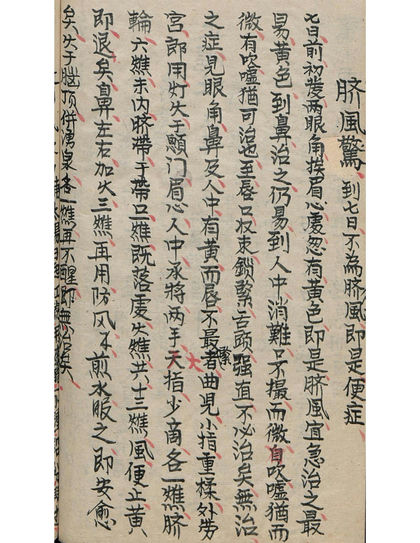 脐風驚 到七日不為脐風即是便症
七日前初發两眼角挨眉心處忽有黃色即是脐風宜急治之最
易黃色到鼻治之仍易到人中消難口不撮而微自吹噓猶而
微有吹噓猶可治也至唇口收束鎖緊舌頭强直不必治矣無治
之症見眼角鼻及人中有黃而唇不最緊者曲児小指重揉外劳
宮即用灯火于顖門眉心人中承將两手大指少商各一燋脐
輪六燋未内脐帶于帶口燋既落處火燋共十三燋風便止黃
即退矣鼻左右加火三燋再用防风煎水服之即安愈
矣火于腦顶併湧泉各一燋再不醒即無治矣